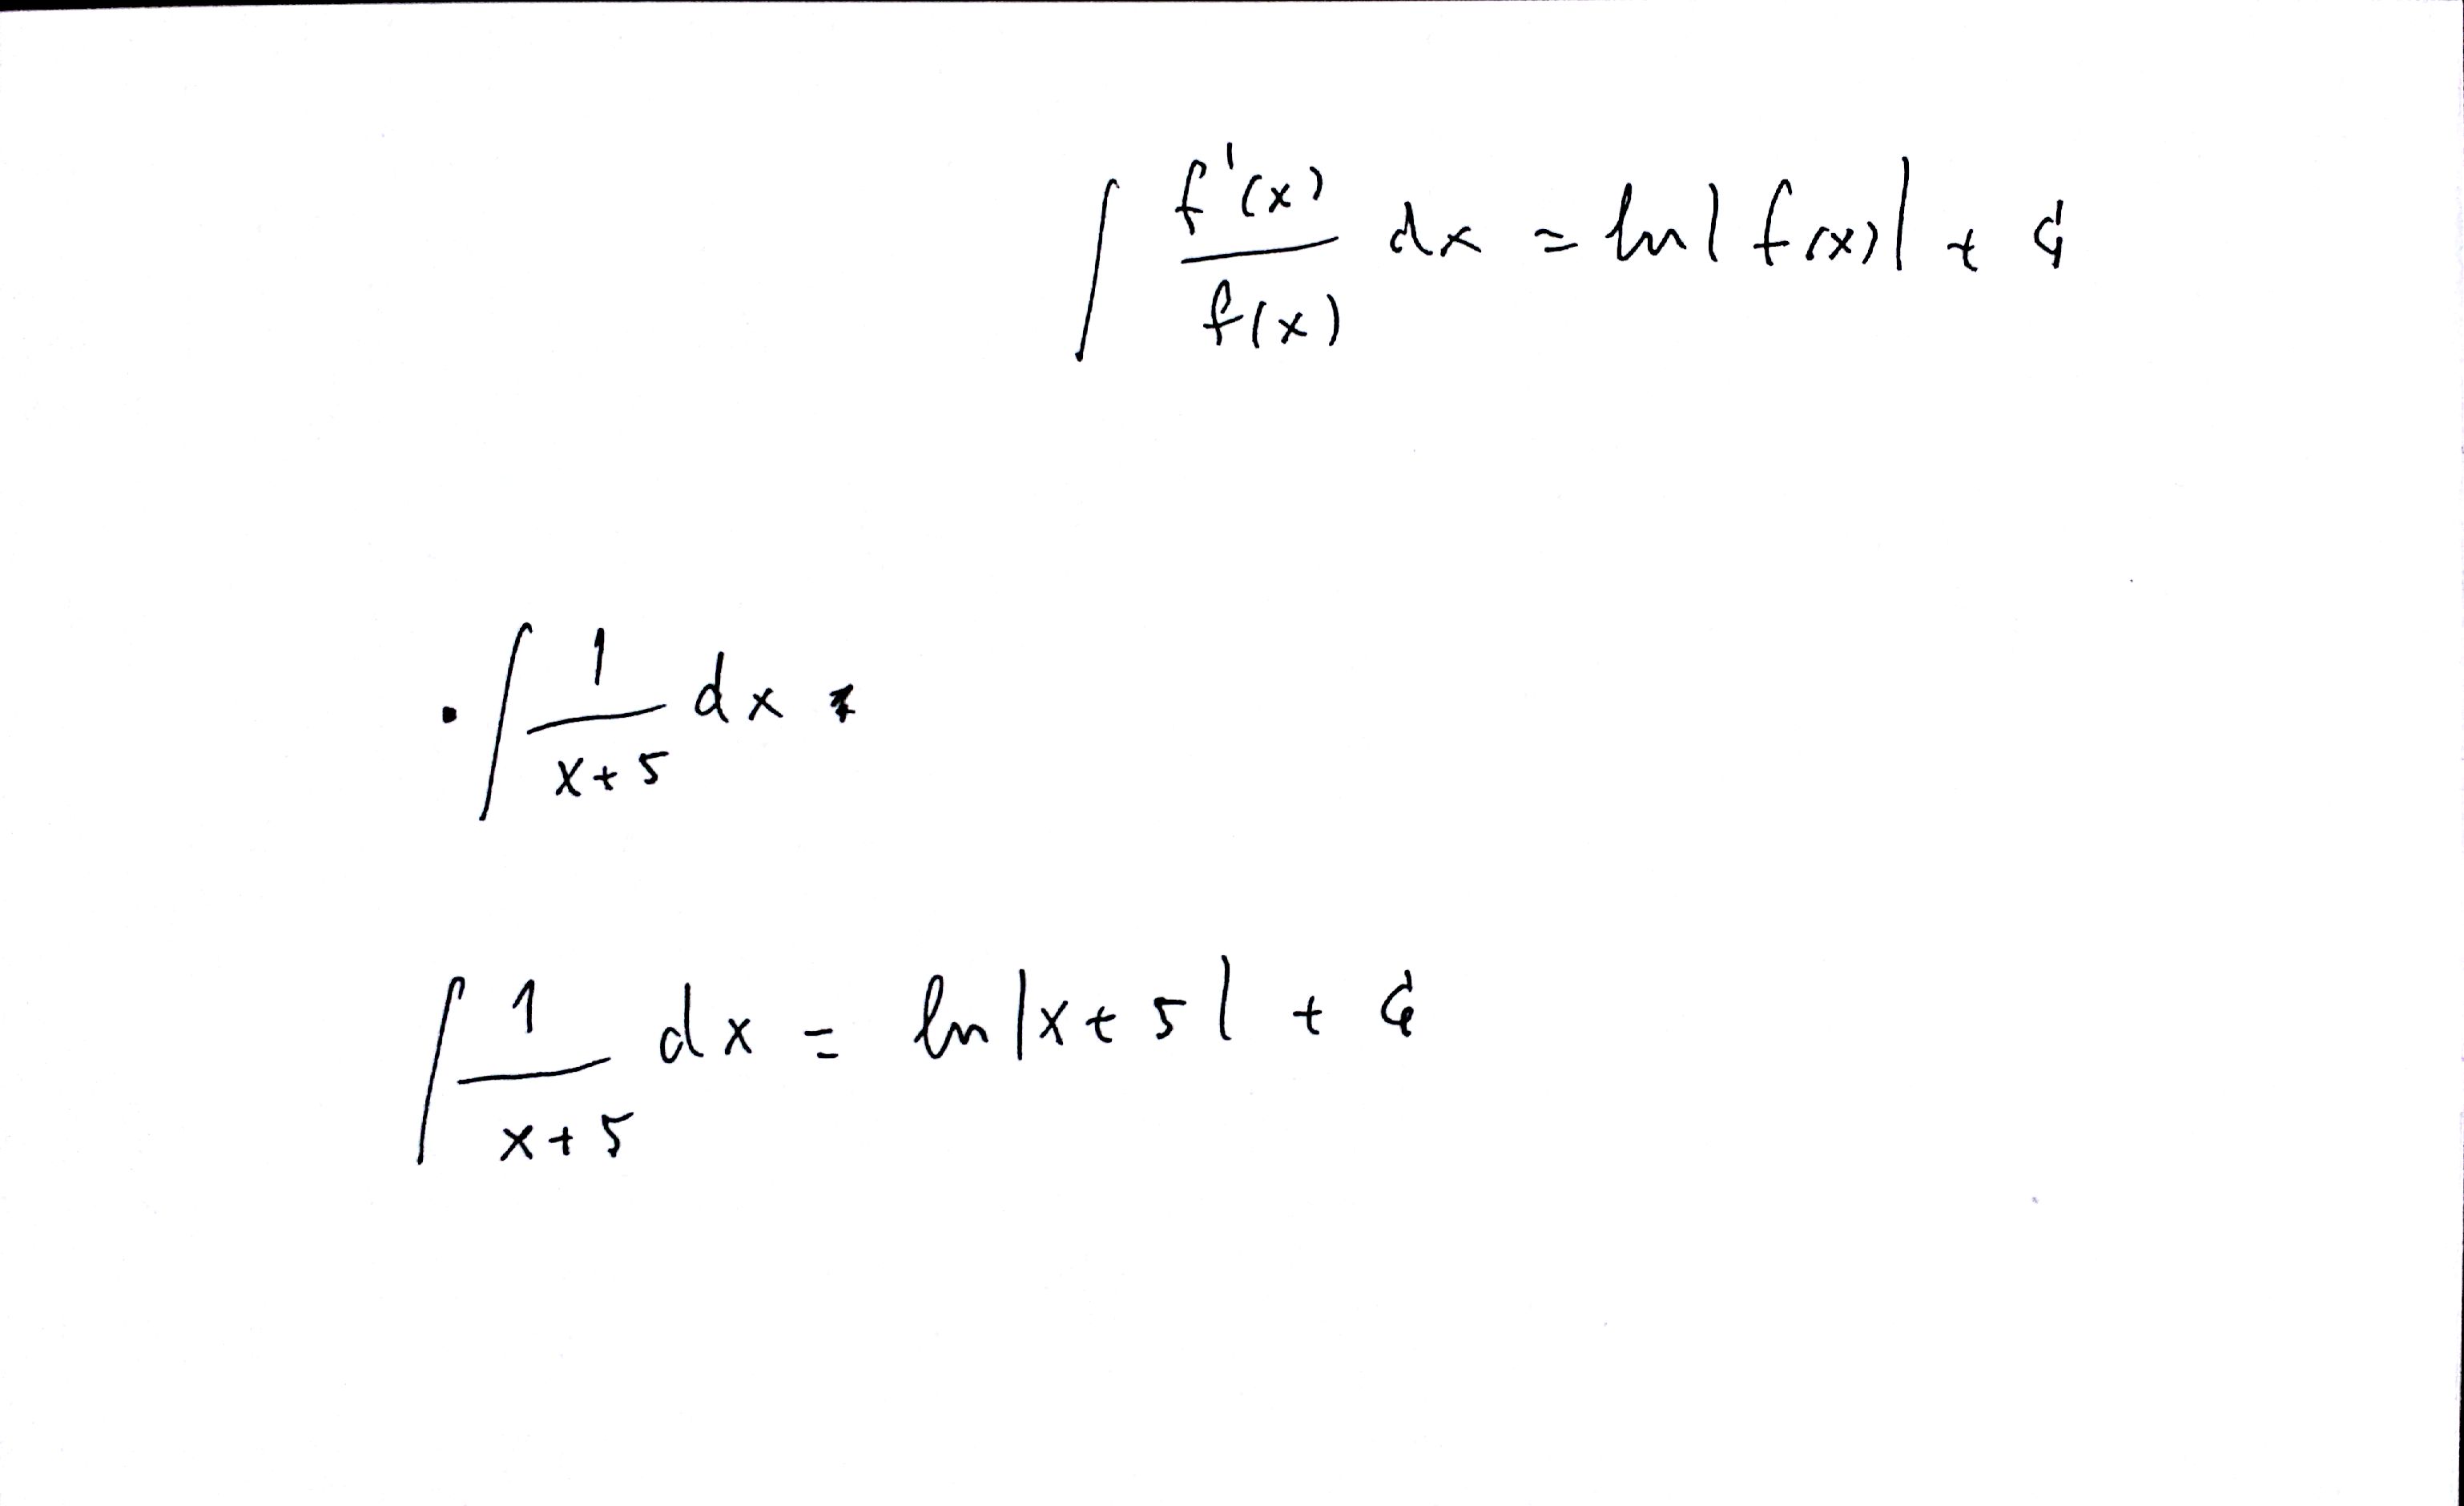 ∫ f'(x)/f(x) dx = ln|f(x)| + C
• ∫ 1/(x+5) dx =
∫ 1/(x+5) dx = ln|x+5| + C